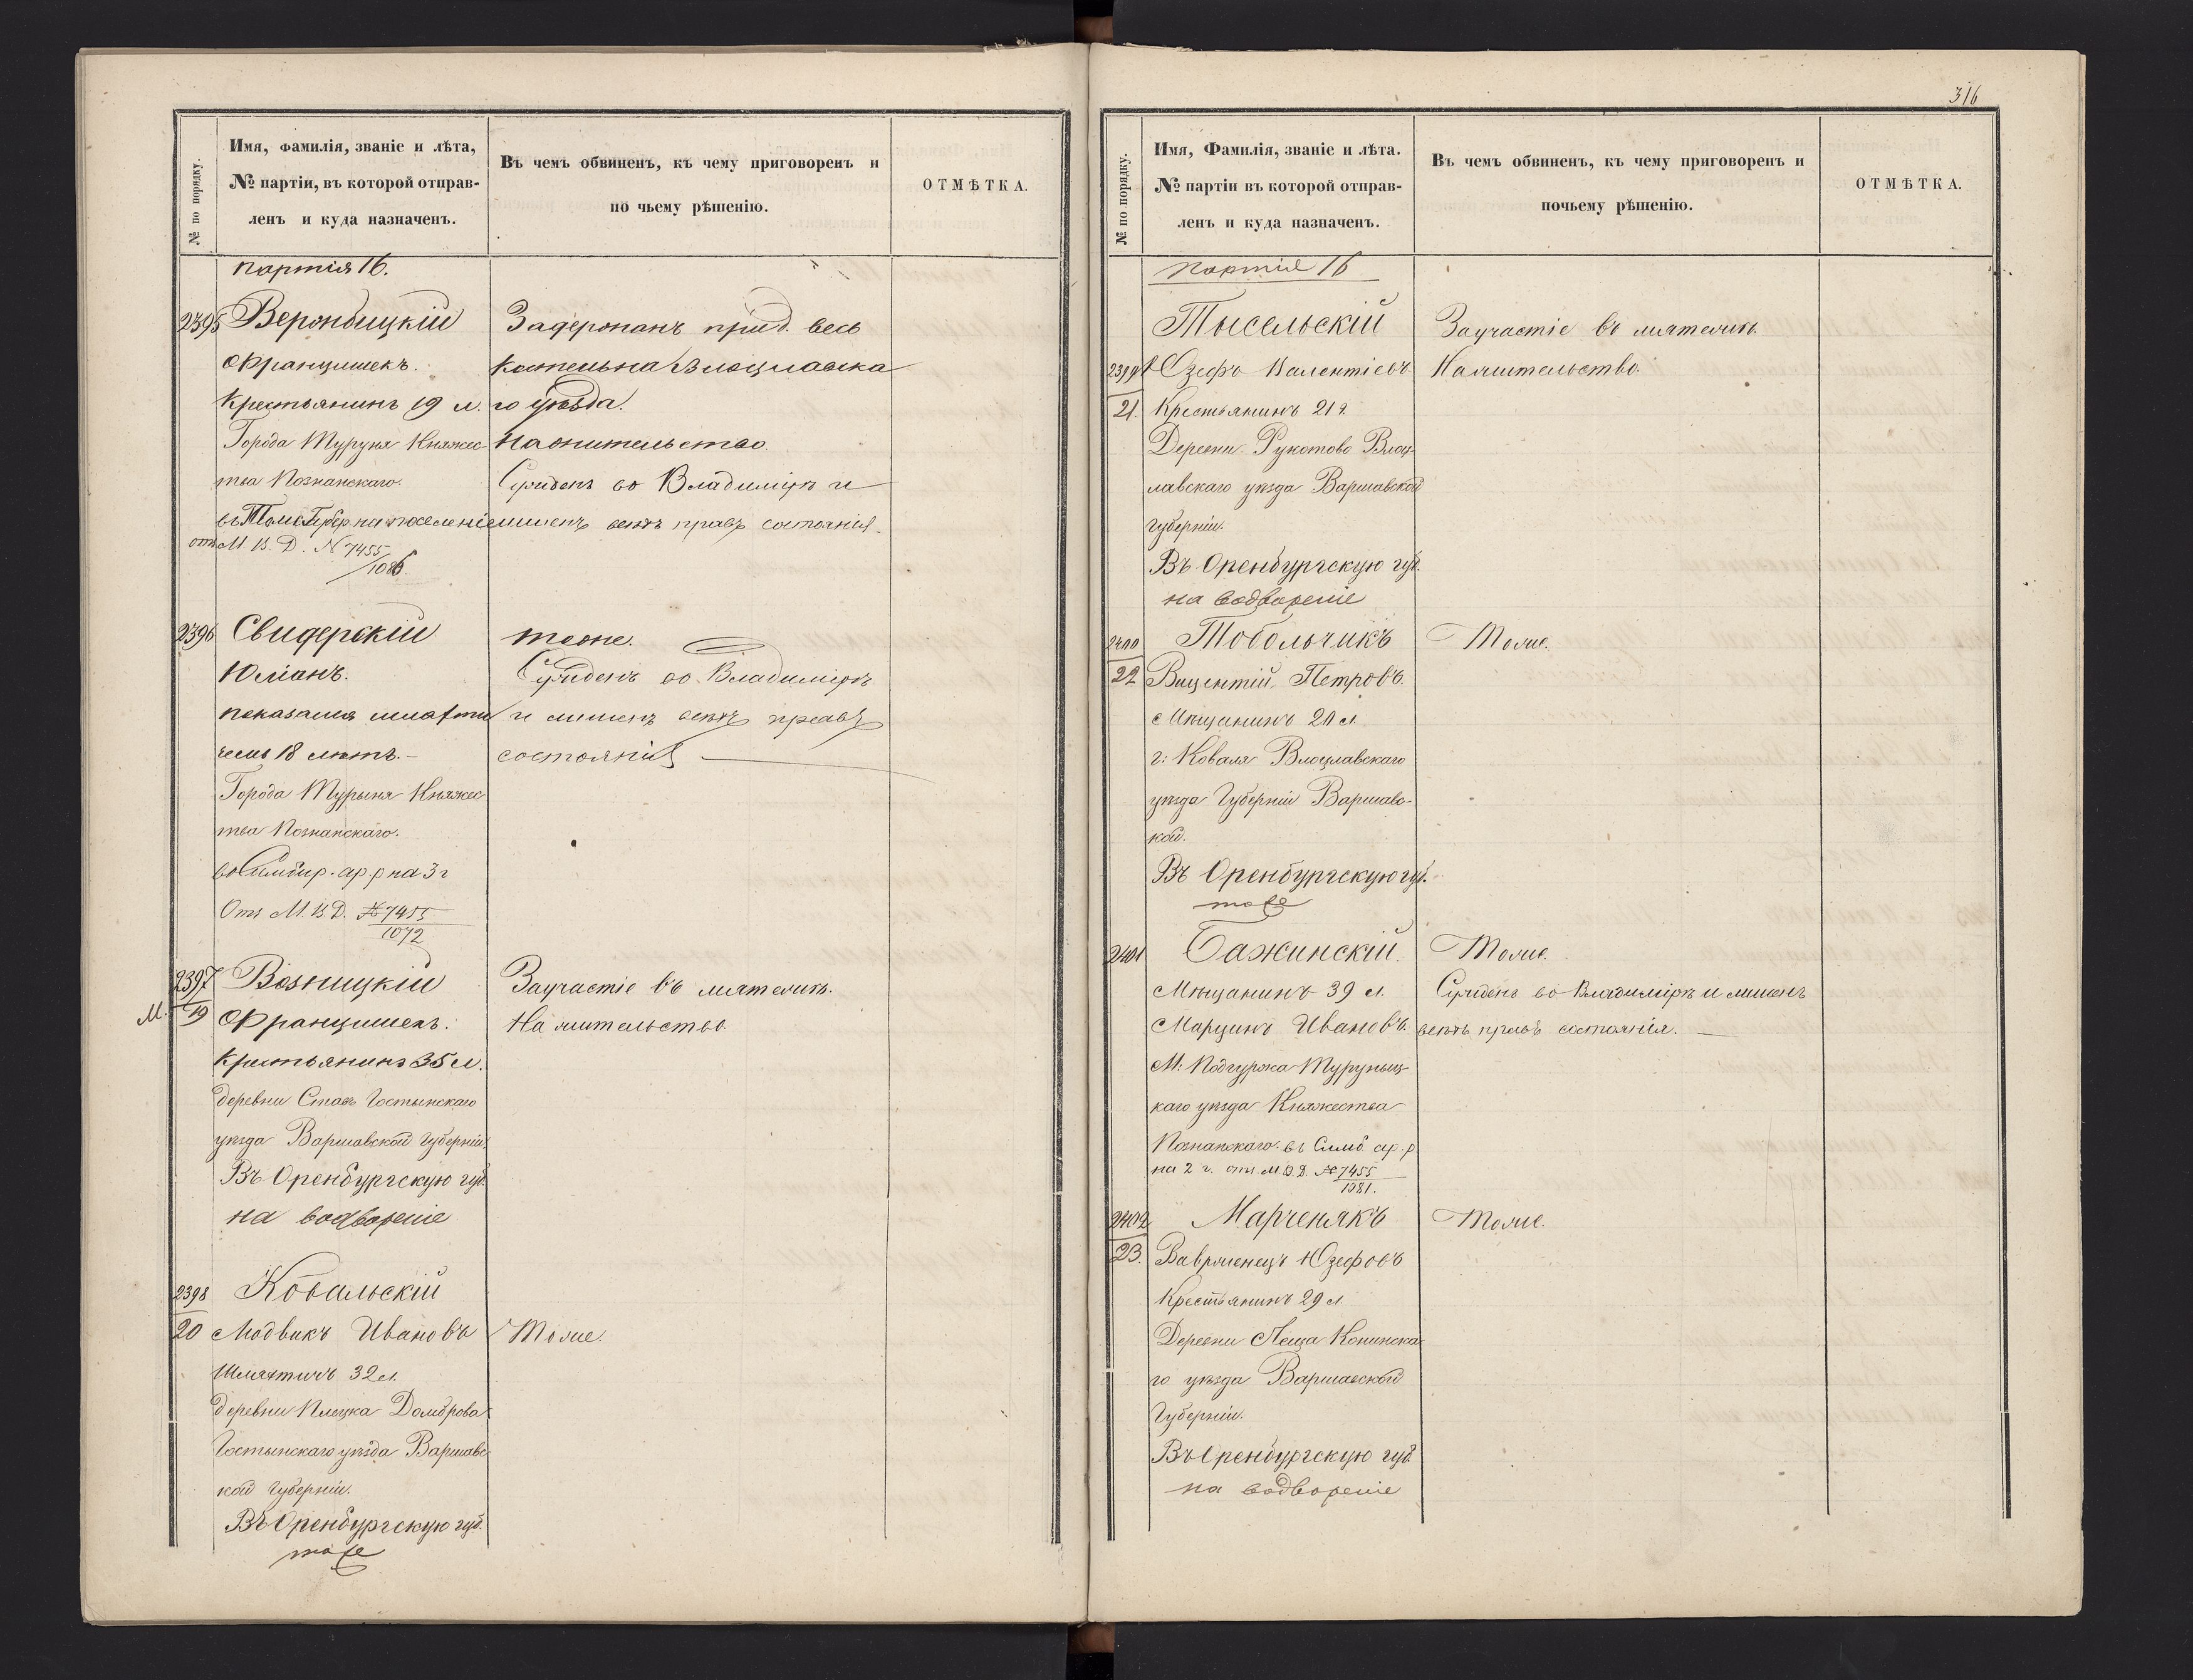 316
№ по порядку.
Имя, фамилія, званіе и лѣта,
№ партіи, въ которой отправ-
ленъ и куда назначенъ.
Въ чемъ обвиненъ, къ чему приговоренъ и
по чьему рѣшенію.
ОТМѢТКА.
партія 16.
2395
Вержбицкій
Францишекъ.
Крестьянинъ 19 л.
Города Туруня Княжес-
тва Познанскаго.
въ Томс. Губер на поселеніе
отъ М. В. Д. N 7455
1086
Задержанъ при д. весь
го уѣзда.
на жительство
Сужденъ во Владимірѣ и
лишенъ всѣхъ правъ состоянія.
2396
Свидерскій
Юліанъ.
показался шляхти
чемъ 18 лѣтъ.-
Города Турыня Княжес-
тва Познанскаго.
въ Симбир. ар. р на 3 г
Отъ М. В. Д. № 7455
1072
тоже.
Сужденъ во Владимірѣ
и лишенъ всѣхъ правъ
состоянія
2397
М. 19
Возницкій
Францишекъ.
Крестьянинъ 35 л.
деревни Стахъ Гостынскаго
уѣзда Варшавской Губерніи.
Въ Оренбургскую губ.
на водвореніе
За участіе въ мятежѣ.
На жительство.
2398
20
Ковальскій
Людвикъ Ивановъ
Шляхтичъ 32 л.
деревни Плецка Домброва
Гостынскаго уѣзда Варшавс-
кой Губерніи.
Въ Оренбургскую губ.
тоже
Тоже.
№ по порядку.
Имя, Фамилія, званіе и лѣта.
№ партіи въ которой отправ-
ленъ и куда назначенъ.
Въ чемъ обвиненъ, къ чему приговоренъ и
почьему рѣшенію.
ОТМѢТКА.
партія 16
2399
21.
Тысельскій
Юзефъ Валентіевъ
Крестьянинъ 21 г.
Деревни Рукотово Влоц-
лавскаго уѣзда Варшавской
Губерніи.
Въ Оренбургскую губ.
на водвореніе
За участіе въ мятежѣ
На жительство.
2400
22
Тобольчикъ
Вицентій Петровъ.
Мѣщанинъ 20 л.
г: Коваля Влоцлавскаго
уѣзда Губерніи Варшавс-
кой.
Въ Оренбургскую губ.
тоже
Тоже.
2401
Бажинскій
Мѣщанинъ 39 л.
Марцинъ Ивановъ.
М: Подгуржа Туруньц-
каго уѣзда Княжества
Познанскаго. въ Симб ар. р
на 2 г. отъ М. В. Д. № 7455
1081.
Тоже.
Сужденъ во Владимірѣ и лишенъ
всѣхъ правъ состоянія.
2402
23.
Марченякъ
Вавржинецъ Юзефовъ
Крестьянинъ 29 л.
Деревни Леща Конинска-
го уѣзда Варшавской
Губерніи.
Въ Оренбургскую губ.
на водвореніе
Тоже.